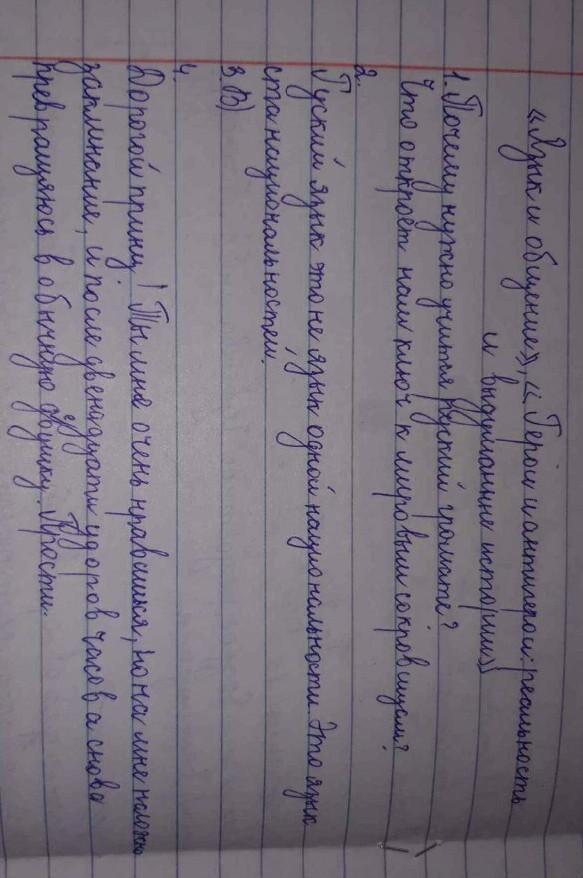 «Язык и общение», «Герои и антигерои: реальность
и выдуманные истории»
1. Почему нужно учится руский громате?
Что откроет нам ключ к мировым сокровищам?
2.
Руский язык это не язык одной национальности Это язык
ста национальностей.
3. В)
4.
Дорогой принц! Ты мне очень нравишься, но на мне наложено
заклинание, и после двенадцати ударов часов а снова
превращяюсь в обычную девушку. Прости.